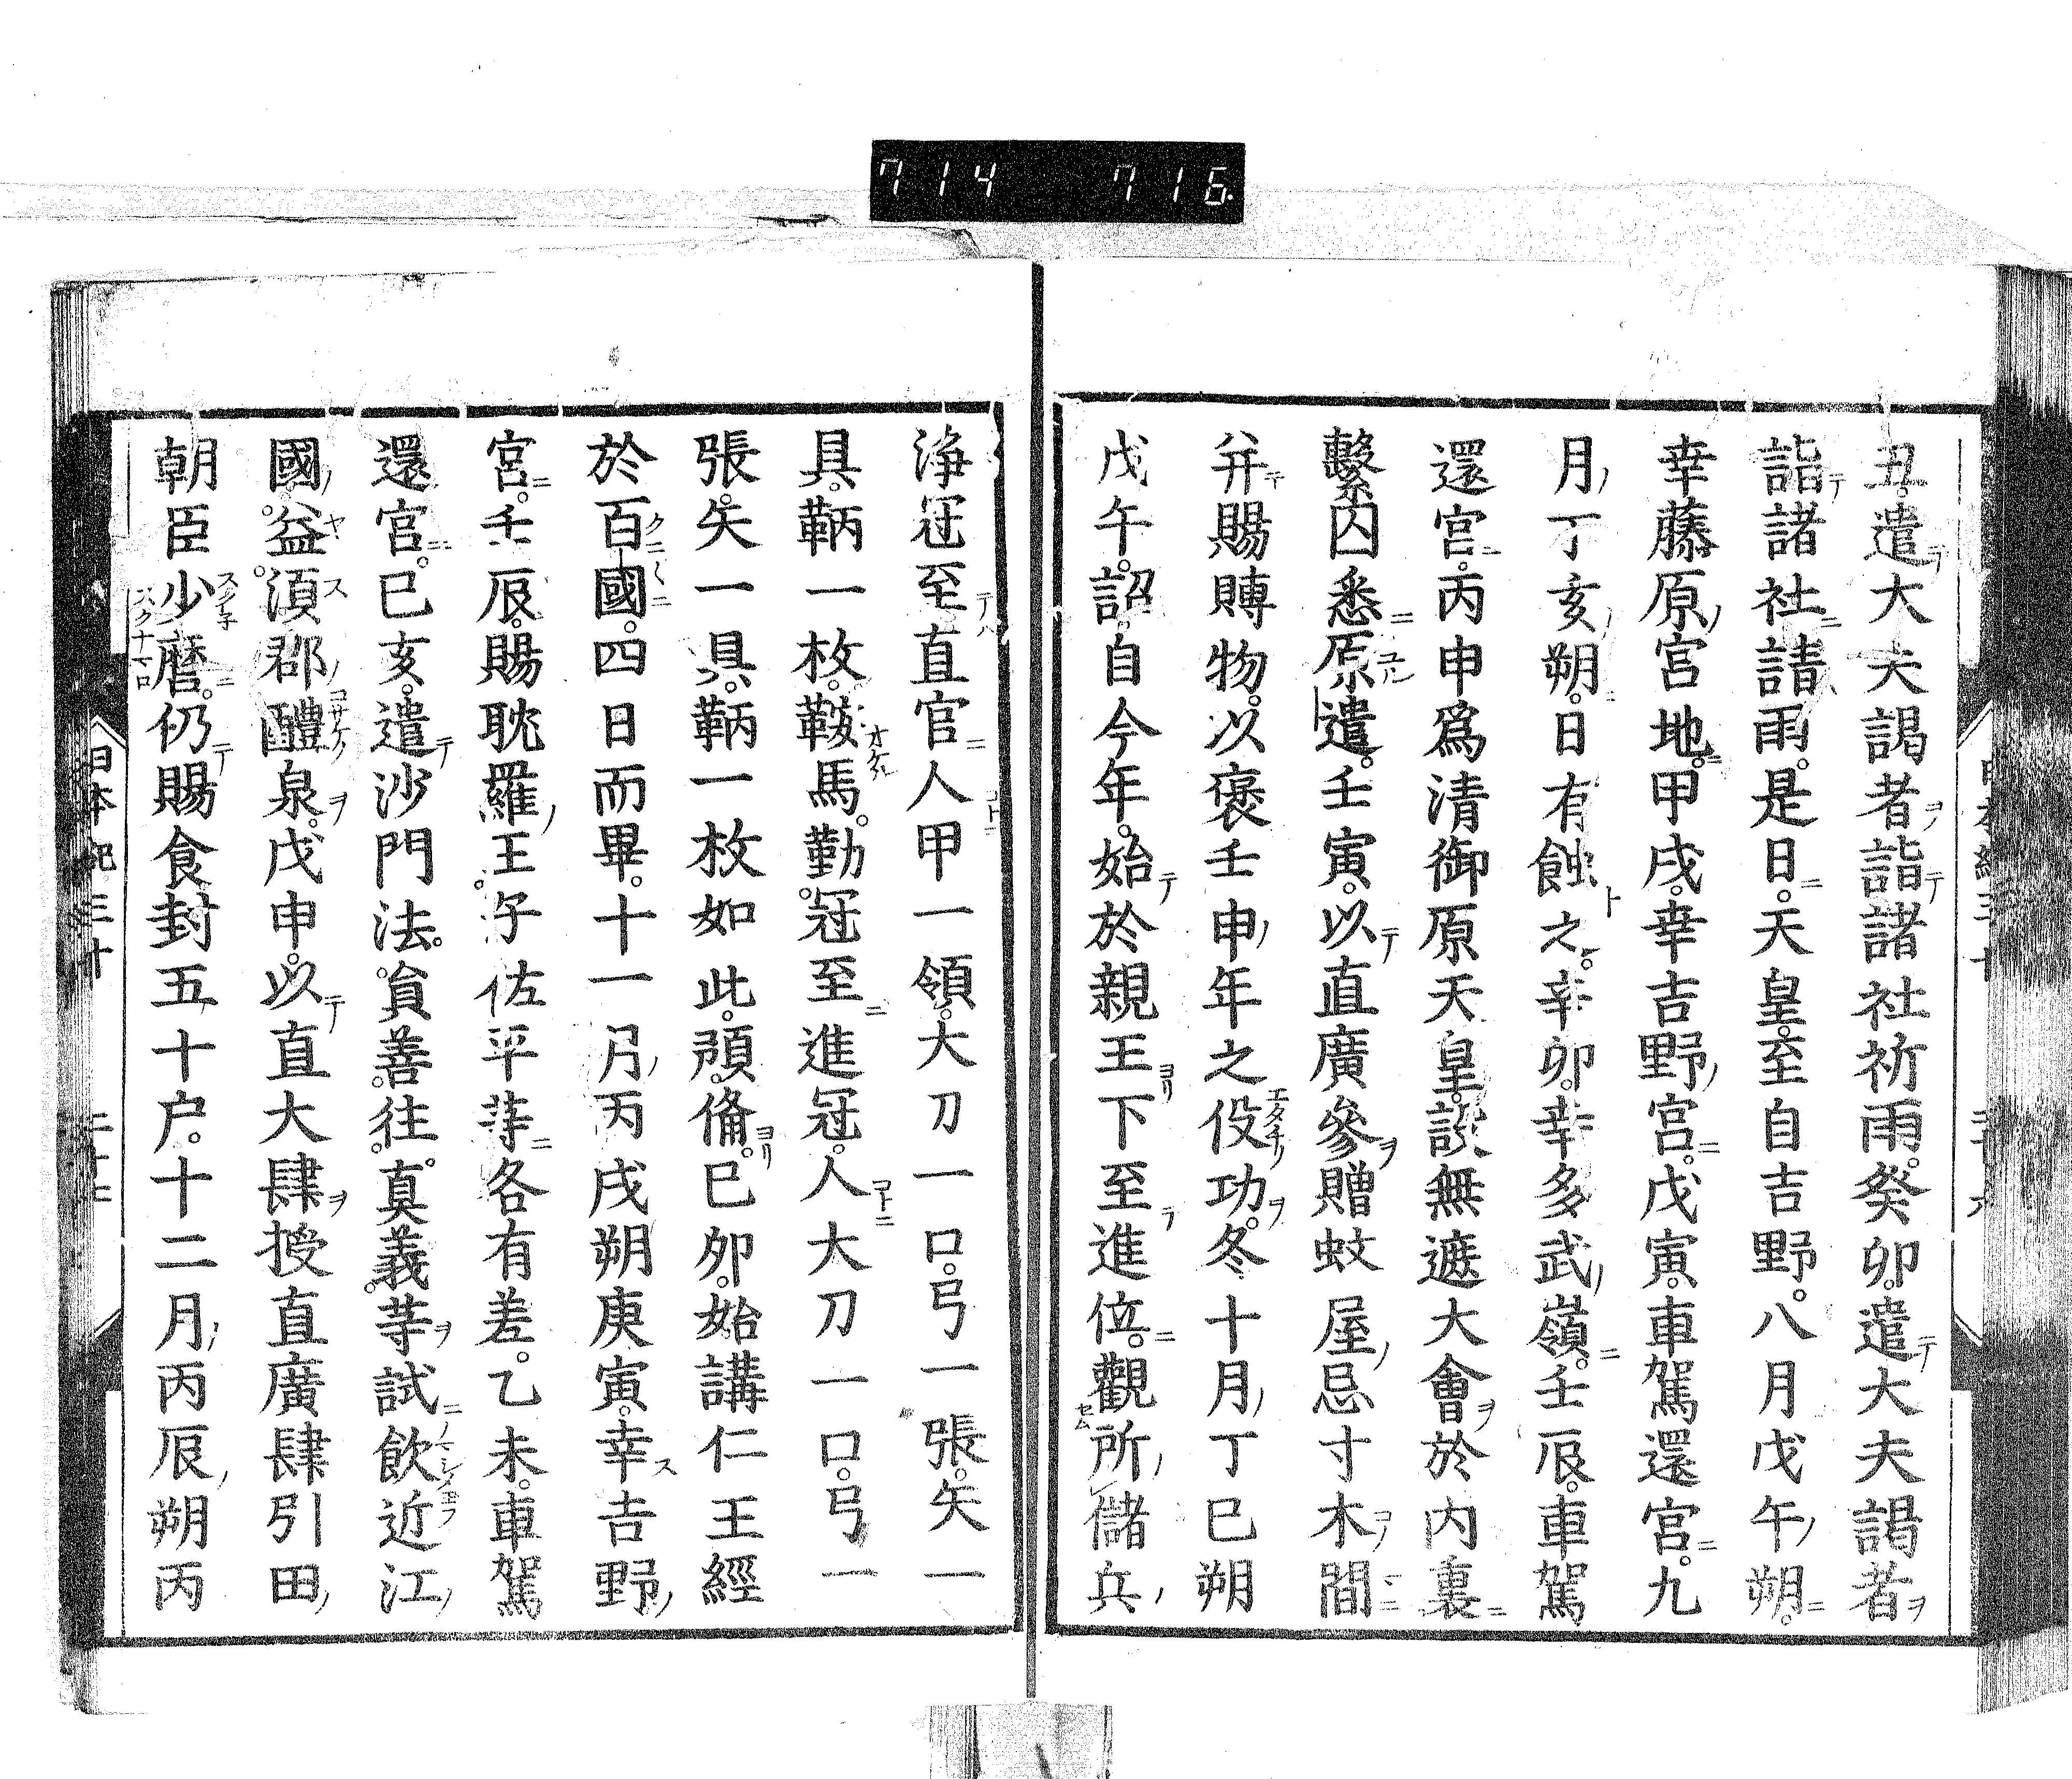 714 716.
丑。遣大夫謁者詣諸社祈雨。癸卯。遣大夫謁者
詣諸社請雨。是日。天皇至自吉野。八月戊午朔。
幸藤原宮地。甲戌。幸吉野宮。戊寅。車駕還宮。九
月丁亥朔。日有蝕之。辛卯。幸多武嶺。壬辰。車駕
還宮。丙申爲清御原天皇。設無遮大會於内裏
繫囚悉原遣。壬寅。以直廣參贈蚊屋忌寸木間
并賜賻物。以褒壬申年之役功。冬十月丁巳朔
戊午。詔。自今年。始於親王下至進位。觀所儲兵
浄冠至直官人甲一領。大刀一口。弓一張。矢一
具。鞆一枚。鞍馬。勤冠至進冠。人大刀一口。弓一
張。矢一具。鞆一枚如此。預備。巳卯。始講仁王經
於百國。四日而畢。十一月丙戌朔庚寅。幸吉野
宮。壬辰。賜耽羅王子佐平等各有差。乙未。車駕
還宮。巳亥。遣沙門法員善往真義等試飲近江
國。益須郡醴泉。戊申。以直大肆授直廣肆引田
朝臣少麿。仍賜食封五十户。十二月丙辰朔丙
日本紀三十